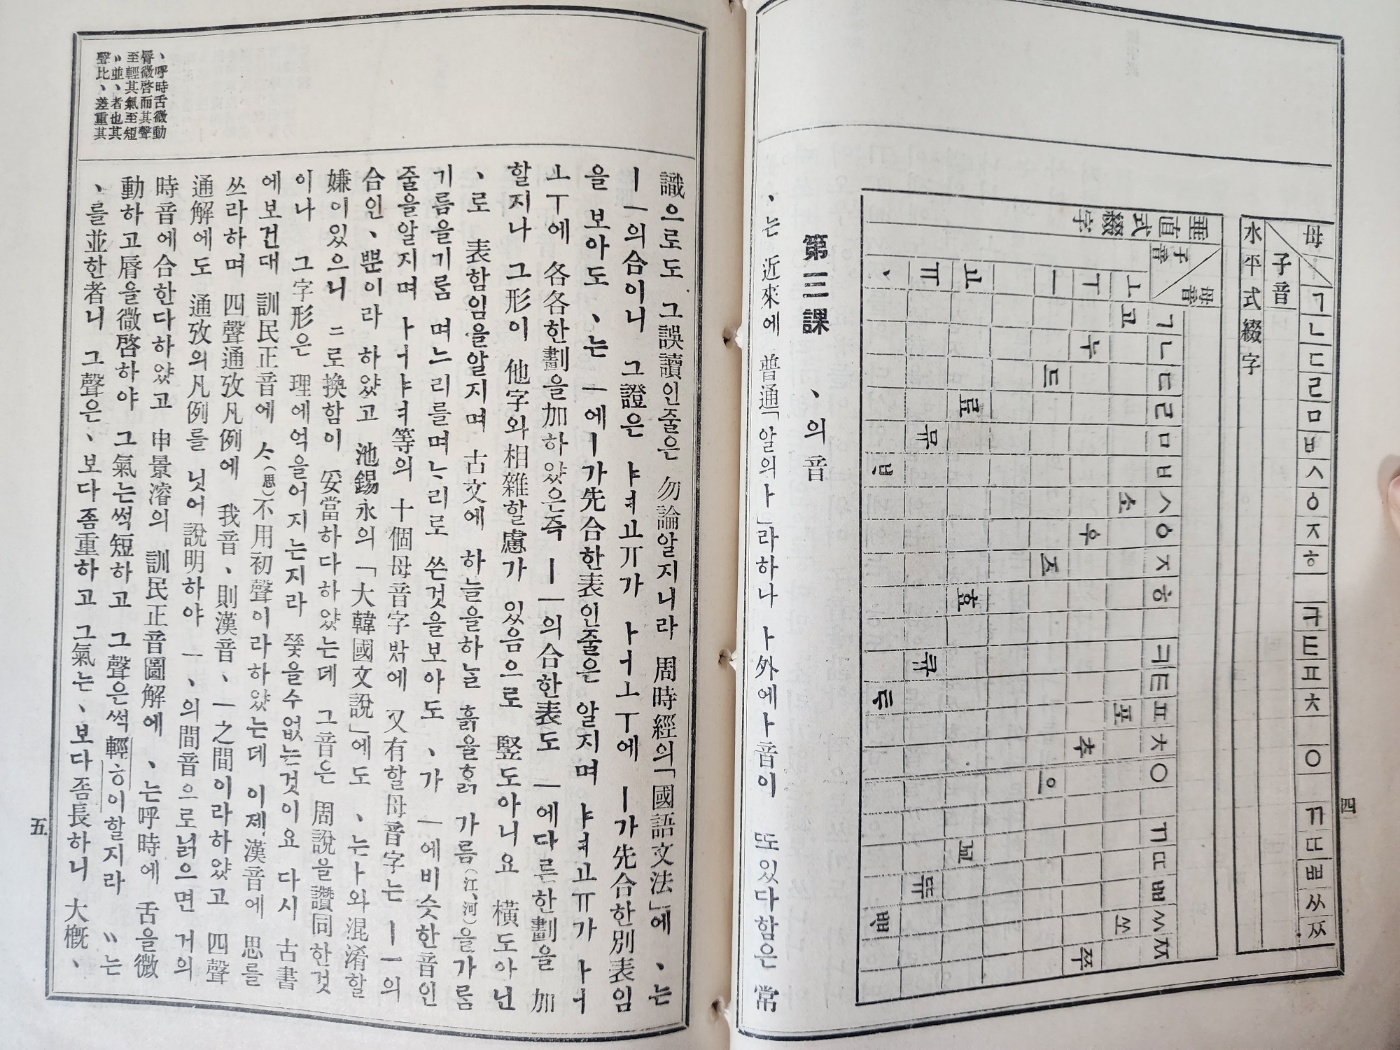 母 ㄱ ㄴ ㄷ ㄹ ㅁ ㅂ ㅅ ㅇ ㅈ ㅎ ㅋ ㅌ ㅍ ㅊ ㅇ ㄲ ㄸ ㅃ ㅆ ㅉ
子音
水平式綴字
垂直式綴字
母音
子音
ㄱ ㄴ ㄷ ㄹ ㅁ ㅂ ㅅ ㅇ ㅈ ㅎ ㅋ ㅌ ㅍ ㅊ ㅇ ㄲ ㄸ ㅃ ㅆ ㅉ
ㅗ 고 소 포 쏘
ㅜ 누 우 추 쭈
ㅡ 드 즈 으
ㅛ 료 효 꾜
ㅠ 뮤 큐 뜌
、 ᄇᆞ ᄐᆞ ᄈᆞ
第三課 、의音
、는 近來에 普通「알의ㅏ」라하나 ㅏ外에ㅏ音이 ᄯᅩ있다함은 常
四
識으로도 그誤讀인줄은 勿論알지니라 周時經의「國語文法」에 、는
ㅣㅡ의合이니 그證은 ㅑㅕㅛㅠ가 ㅏㅓㅗㅜ에 ㅣ가先合한別表임
을 보아도、는 ㅡ에ㅣ가先合한表인줄은 알지며 ㅑㅕㅛㅠ가 ㅏㅓ
ㅗㅜ에 各各한劃을加하얐은즉 ㅣㅡ의合한表도 ㅡ에다른한劃을 加
할지나 그形이 他字와相雜할慮가 있음으로 竪도아니요 橫도아닌
、로 表함임을알지며 古文에 하늘을하ᄂᆞᆯ 흙을ᄒᆞᆰ 가름(江、河)을가ᄅᆞᆷ
기름을기ᄅᆞᆷ 며느리를며ᄂᆞ리로 쓴것을보아도 、가 ㅡ에비슷한音인
줄을알지며 ㅏㅓㅑㅕ等의 十個母音字밖에 又有할母音字는 ㅣㅡ의
合인、뿐이라 하얐고 池錫永의「大韓國文說」에도 、는ㅏ와混淆할
嫌이있으니 =로換함이 妥當하다하얐는데 그音은 周說을讚同한것
이나 그字形은 理에억을어지는지라 쫓을수없는것이요 다시 古書
에보건대 訓民正音에 ᄉᆞ(思)不用初聲이라하얐는데 이제漢音에 思를
쓰라하며 四聲通攷凡例에 我音、則漢音、ㅡ之間이라하얐고 四聲
通解에도 通攷의凡例를 닛어說明하야 ㅡ、의間音으로넑으면 거의
時音에合한다하얐고 申景濬의 訓民正音圖解에 、는呼時에 舌을微
動하고脣을微啓하야 그氣는썩短하고 그聲은썩輕ㅎ이할지라 〃는
、를並한者니 그聲은、보다좀重하고 그氣는、보다좀長하니 大槪、
、呼時舌微動
脣微啓而其聲
至輕其氣至短
〃並、者也其
聲比、差重其
五